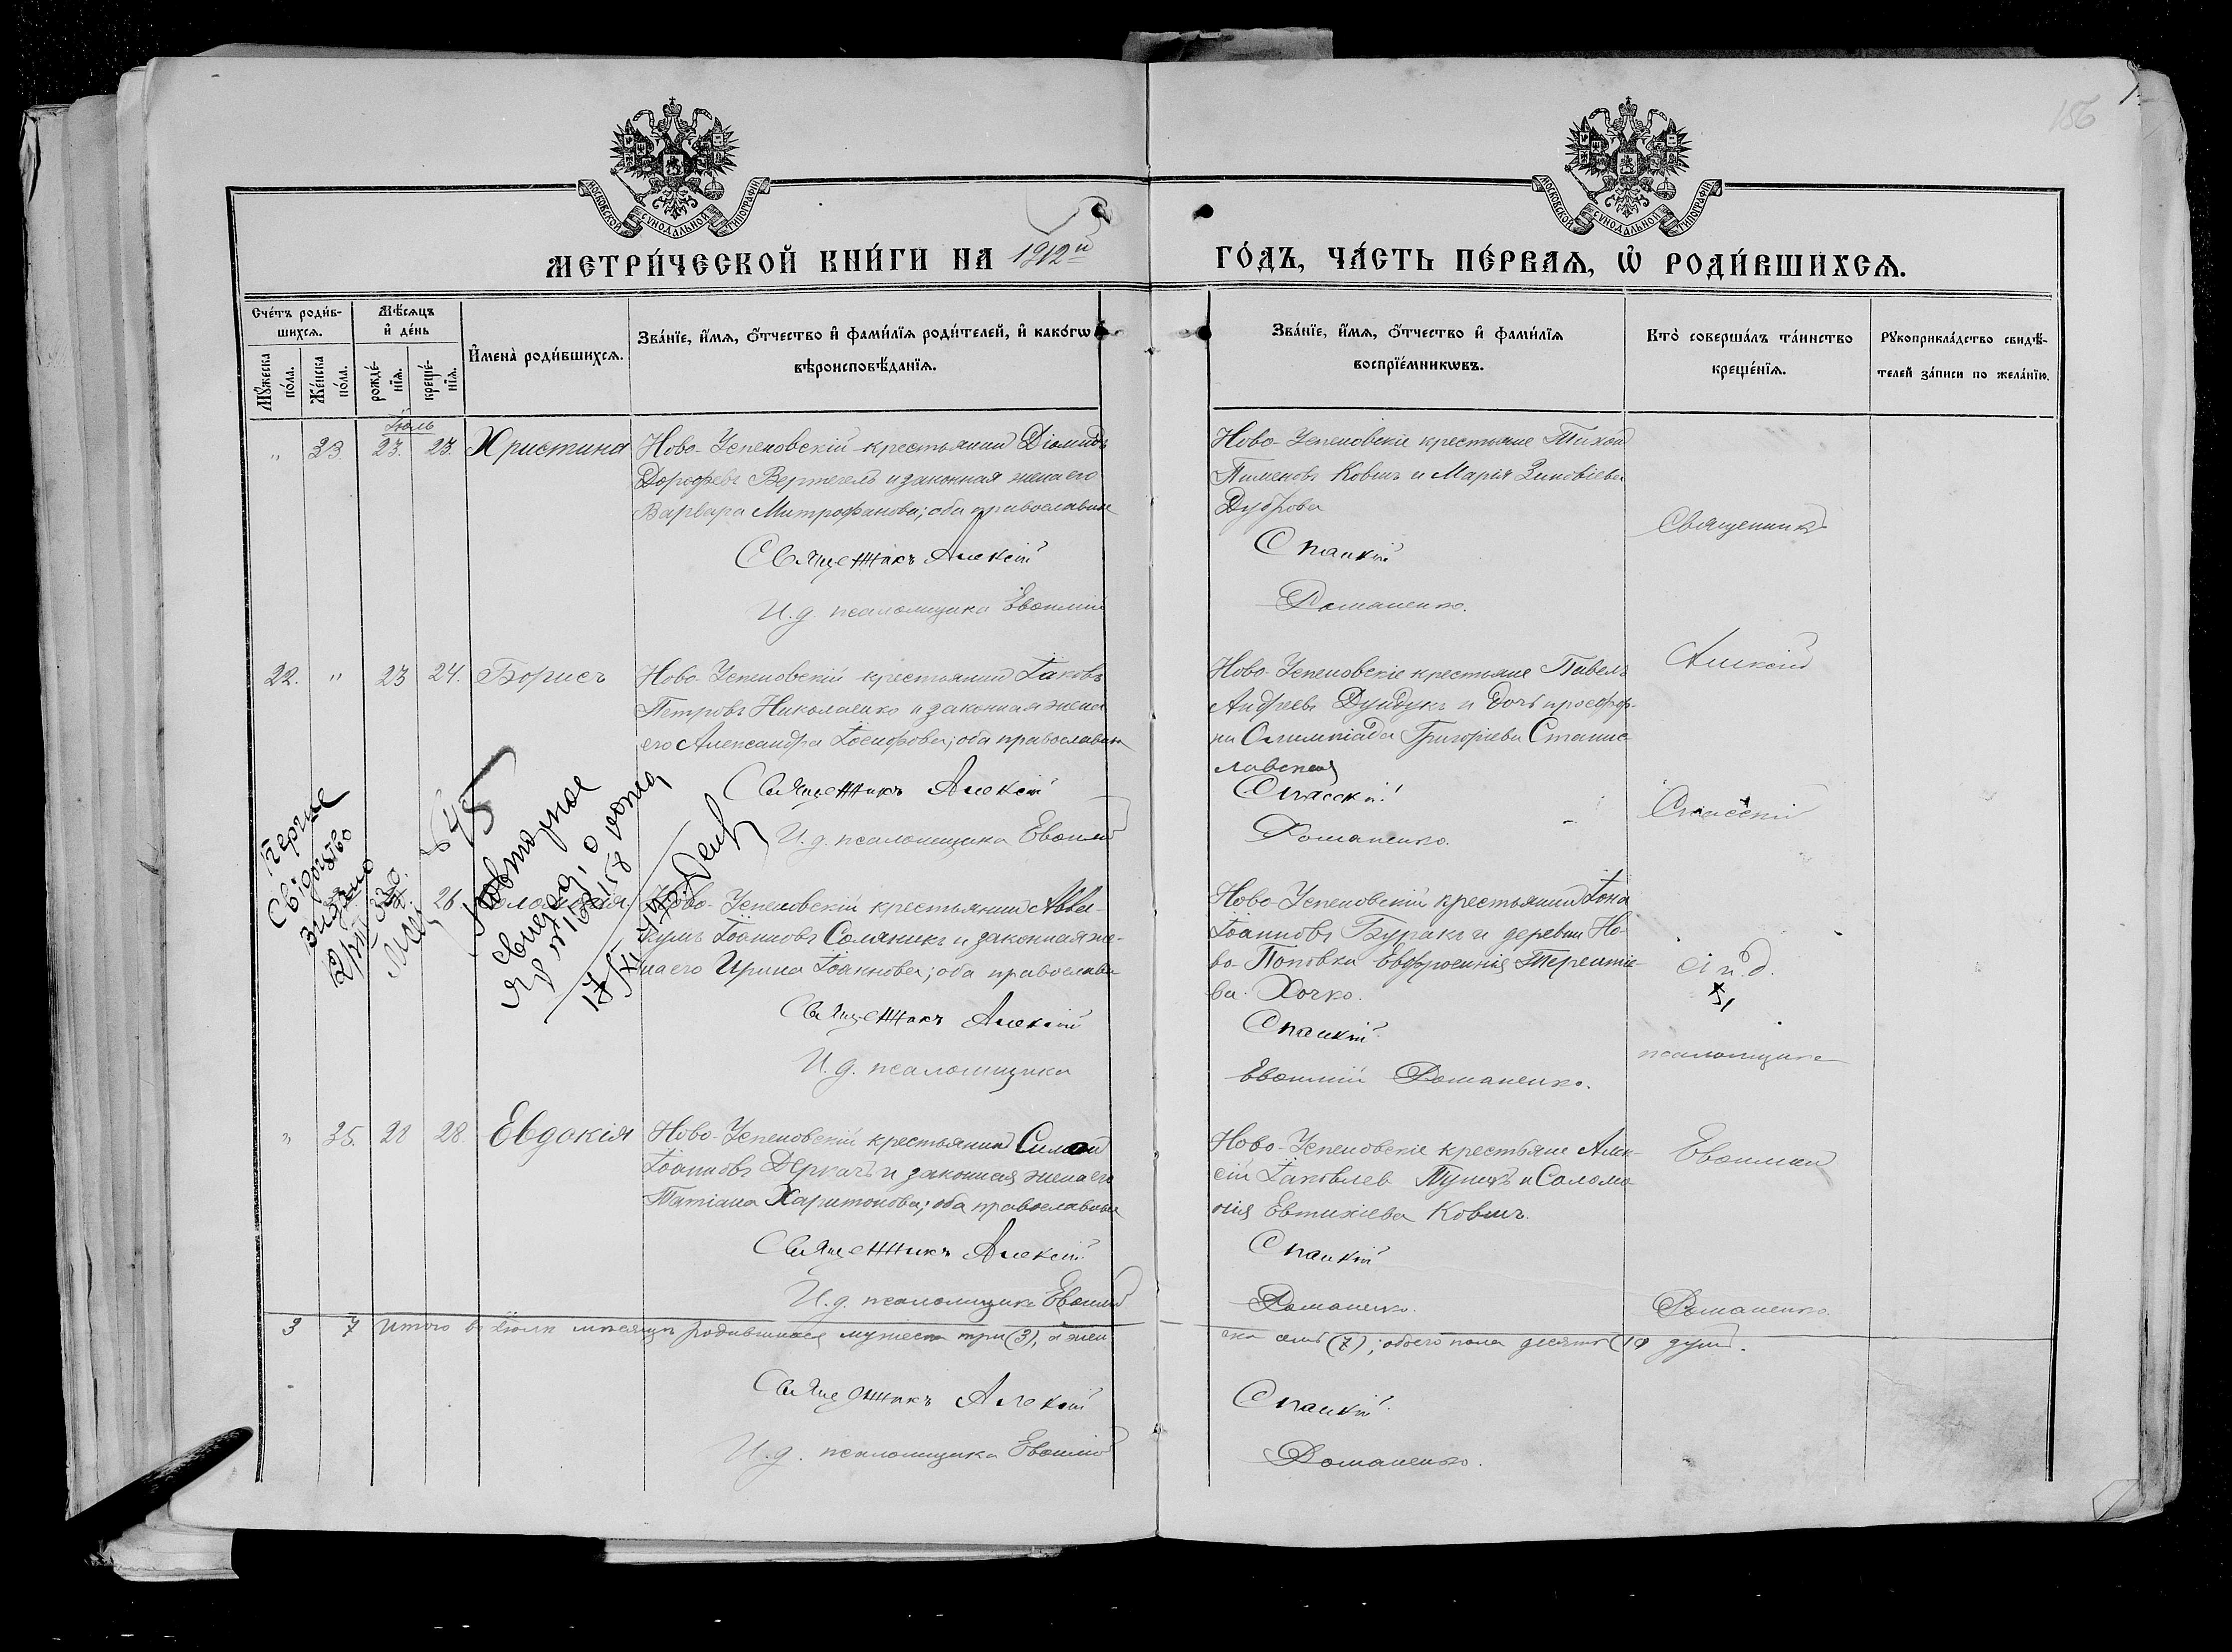 156
МОСКОВСКОЙ СѴНОДАЛЬНОЙ ТИПОГРАФІИ
МОСКОВСКОЙ СѴНОДАЛЬНОЙ ТИПОГРАФІИ
МЕТРИ́ЧЕСКОЙ КНИ́ГИ НА 1912й ГО́ДЪ, ЧА́СТЬ ПЕ́РВАЯ, Ѡ҆ РОДИ́ВШИХСЯ.
Сче́тъ роди́в-
шихся.
Мѣ́сяцъ
и҆ де́нь
Мꙋ́жеска по́ла.
Же́нска по́ла.
рожде́-
нїя.
креще́-
нїя.
И҆мена̀ роди́вшихся.
Зва́нїе, и҆́мя, ѻ҆́тчество и҆ фами́лїя роди́телей, и҆ како́гѡ
вѣроисповѣ́данїя.
Зва́нїе, и҆́мя, ѻ҆́тчество и҆ фами́лїя
воспрїе́мникѡвъ.
Кто̀ соверша́лъ та́инство
креще́нїя.
Рꙋкоприкла́дство свидѣ́-
телей за́писи по жела́нїю.
Іюль
" 23. 23. 23. Христина
Ново-Успеновскій крестьянинъ Діомидъ
Дорофеевъ Вертегелъ и законная жена его
Варвара Митрофанова; оба православные
Священникъ Алексій
И. д. псаломщика Евѳимій
Ново-Успеновскіе крестьяне Тихонъ
Пименовъ Ковшъ и Марія Зиновіева
Дуброва
Спасскій
Романенко.
Священникъ
22. " 23 24. Борисъ
Ново-Успеновскій крестьянинъ Іаковъ
Петровъ Николаенко и законная жена
его Александра Іосифова; оба православные
Священникъ Алексій
И. д. псаломщика Евѳимій
Ново-Успеновскіе крестьяне Павелъ
Андреевъ Дундукъ и дочь просфор-
ни Олимпіада Григоріева Станис-
лавская
Спасскій
Романенко.
Алексій
Спасскій
645
Свідоцтво
видано
Повторное
свид. о рожд.
26. Соломонія
Ново-Успеновскій крестьянинъ Авва-
кумъ Іоанновъ Соляникъ и законная же-
на его Ирина Іоакнова; оба православные
Священникъ Алексій
И. д. псаломщика
Ново-Успеновскій крестьянинъ Іона
Іоанновъ Буракъ и деревни Но-
во-Поповки Евфросинія Терентіе-
ва Хочко.
Спасскій
Евѳимій Романенко.
и. д.
псаломщика
" 25. 28 28. Евдокія
Ново-Успеновскій крестьянинъ Симеонъ
Іоанновъ Деркачъ и законная жена его
Татіана Харитонова; оба православные
Священникъ Алексій
И. д. псаломщика Евѳимій
Ново-Успеновскіе крестьяне Алек-
сій Іаковлевъ Тупицъ и Соломо-
нія Евтихіева Ковшъ.
Спасскій
Романенко.
Евѳимій
Романенко.
3 7 Итого въ іюлѣ мѣсяцѣ родившихся мужеска три (3), а жен
ска семь (7); обоего пола десять (10) душъ.
Священникъ Алексій
Спасскій
И. д. псаломщика Евѳимій
Романенко.